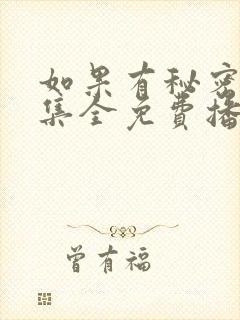 如果有秘密
集全免费播
曾有福